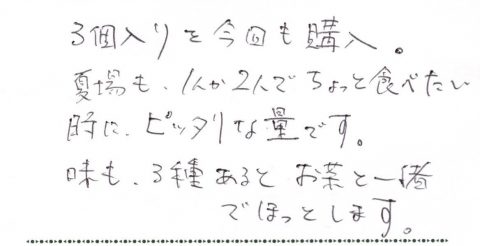 3個入りを今回も購入。
夏場も、1人か2人でちょっと食べたい
時に、ピッタリな量です。
味も、3種あると お茶と一緒
でほっとします。